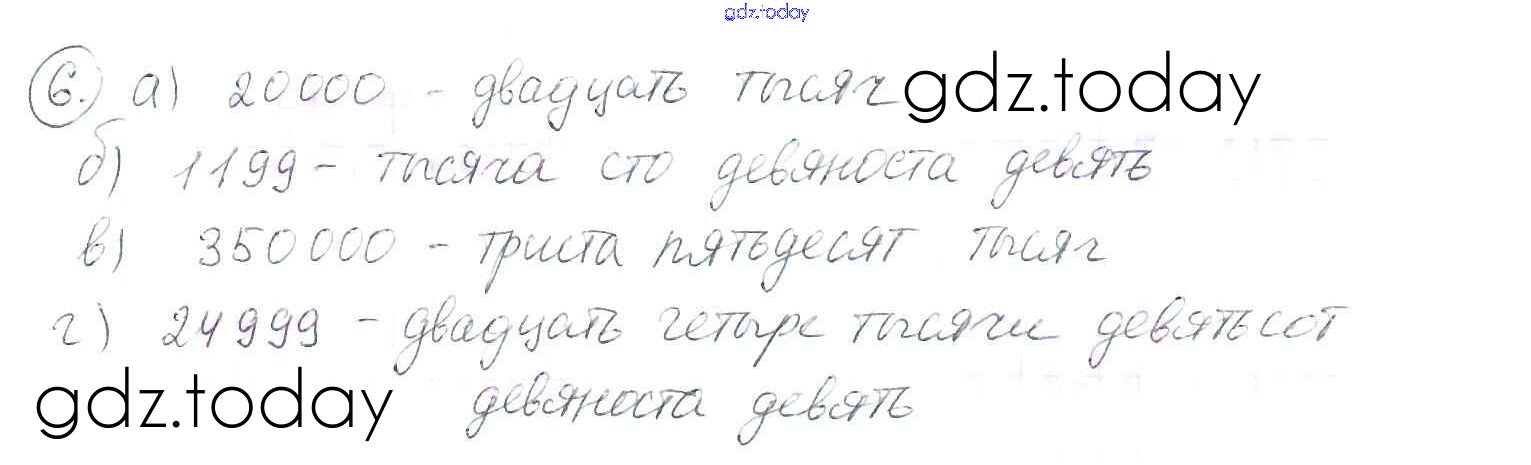 gdz.today
6. а) 20000 - двадцать тысяч gdz.today
б) 1199 - тысяча сто девяноста девять
в) 350000 - триста пятьдесят тысяч
г) 24999 - двадцать четыре тысячи девятьсот
gdz.today девяноста девять